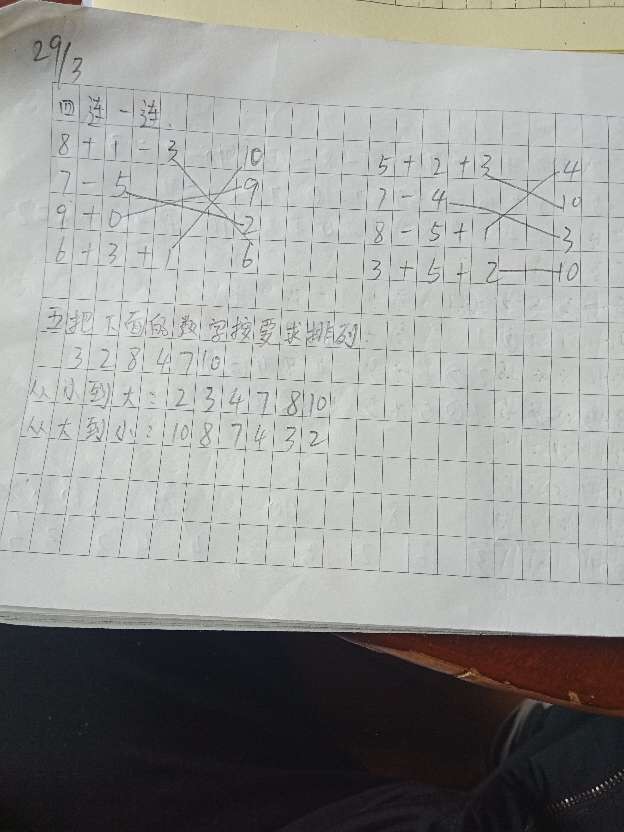 29/3
四连一连.
8+1-3 10
7-5 9
9+0 2
6+3+1 6
5+2+3 4
7-4 10
8-5+1 3
3+5+2 10
五把下面的数字按要求排列.
3 2 8 4 7 10
从小到大:2 3 4 7 8 10
从大到小:10 8 7 4 3 2